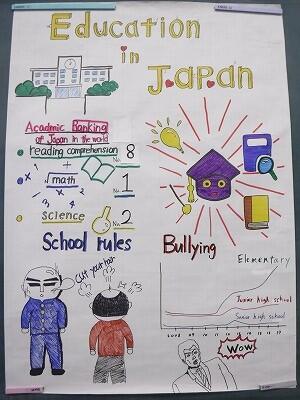 Education
in
Japan
Academic Ranking
of Japan in the world
reading comprehension No. 8
math No. 1
science No. 2
School rules
cut your hair
Bullying
Elementary
Junior high school
Senior high school
WOW